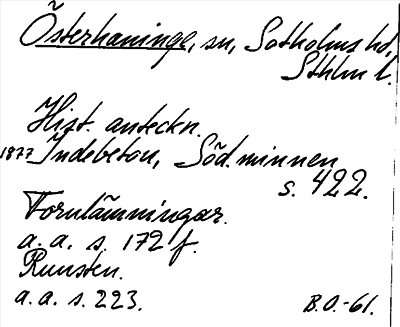 Österhaninge, sn, Sotholms hd,
Sthlm l.
Hist. anteckn.
1877 Indebetou, Söd. minnen
s. 422.
Fornlämningar.
a. a. s. 172 f.
Runsten.
a. a. s. 223.
B.O.-61.